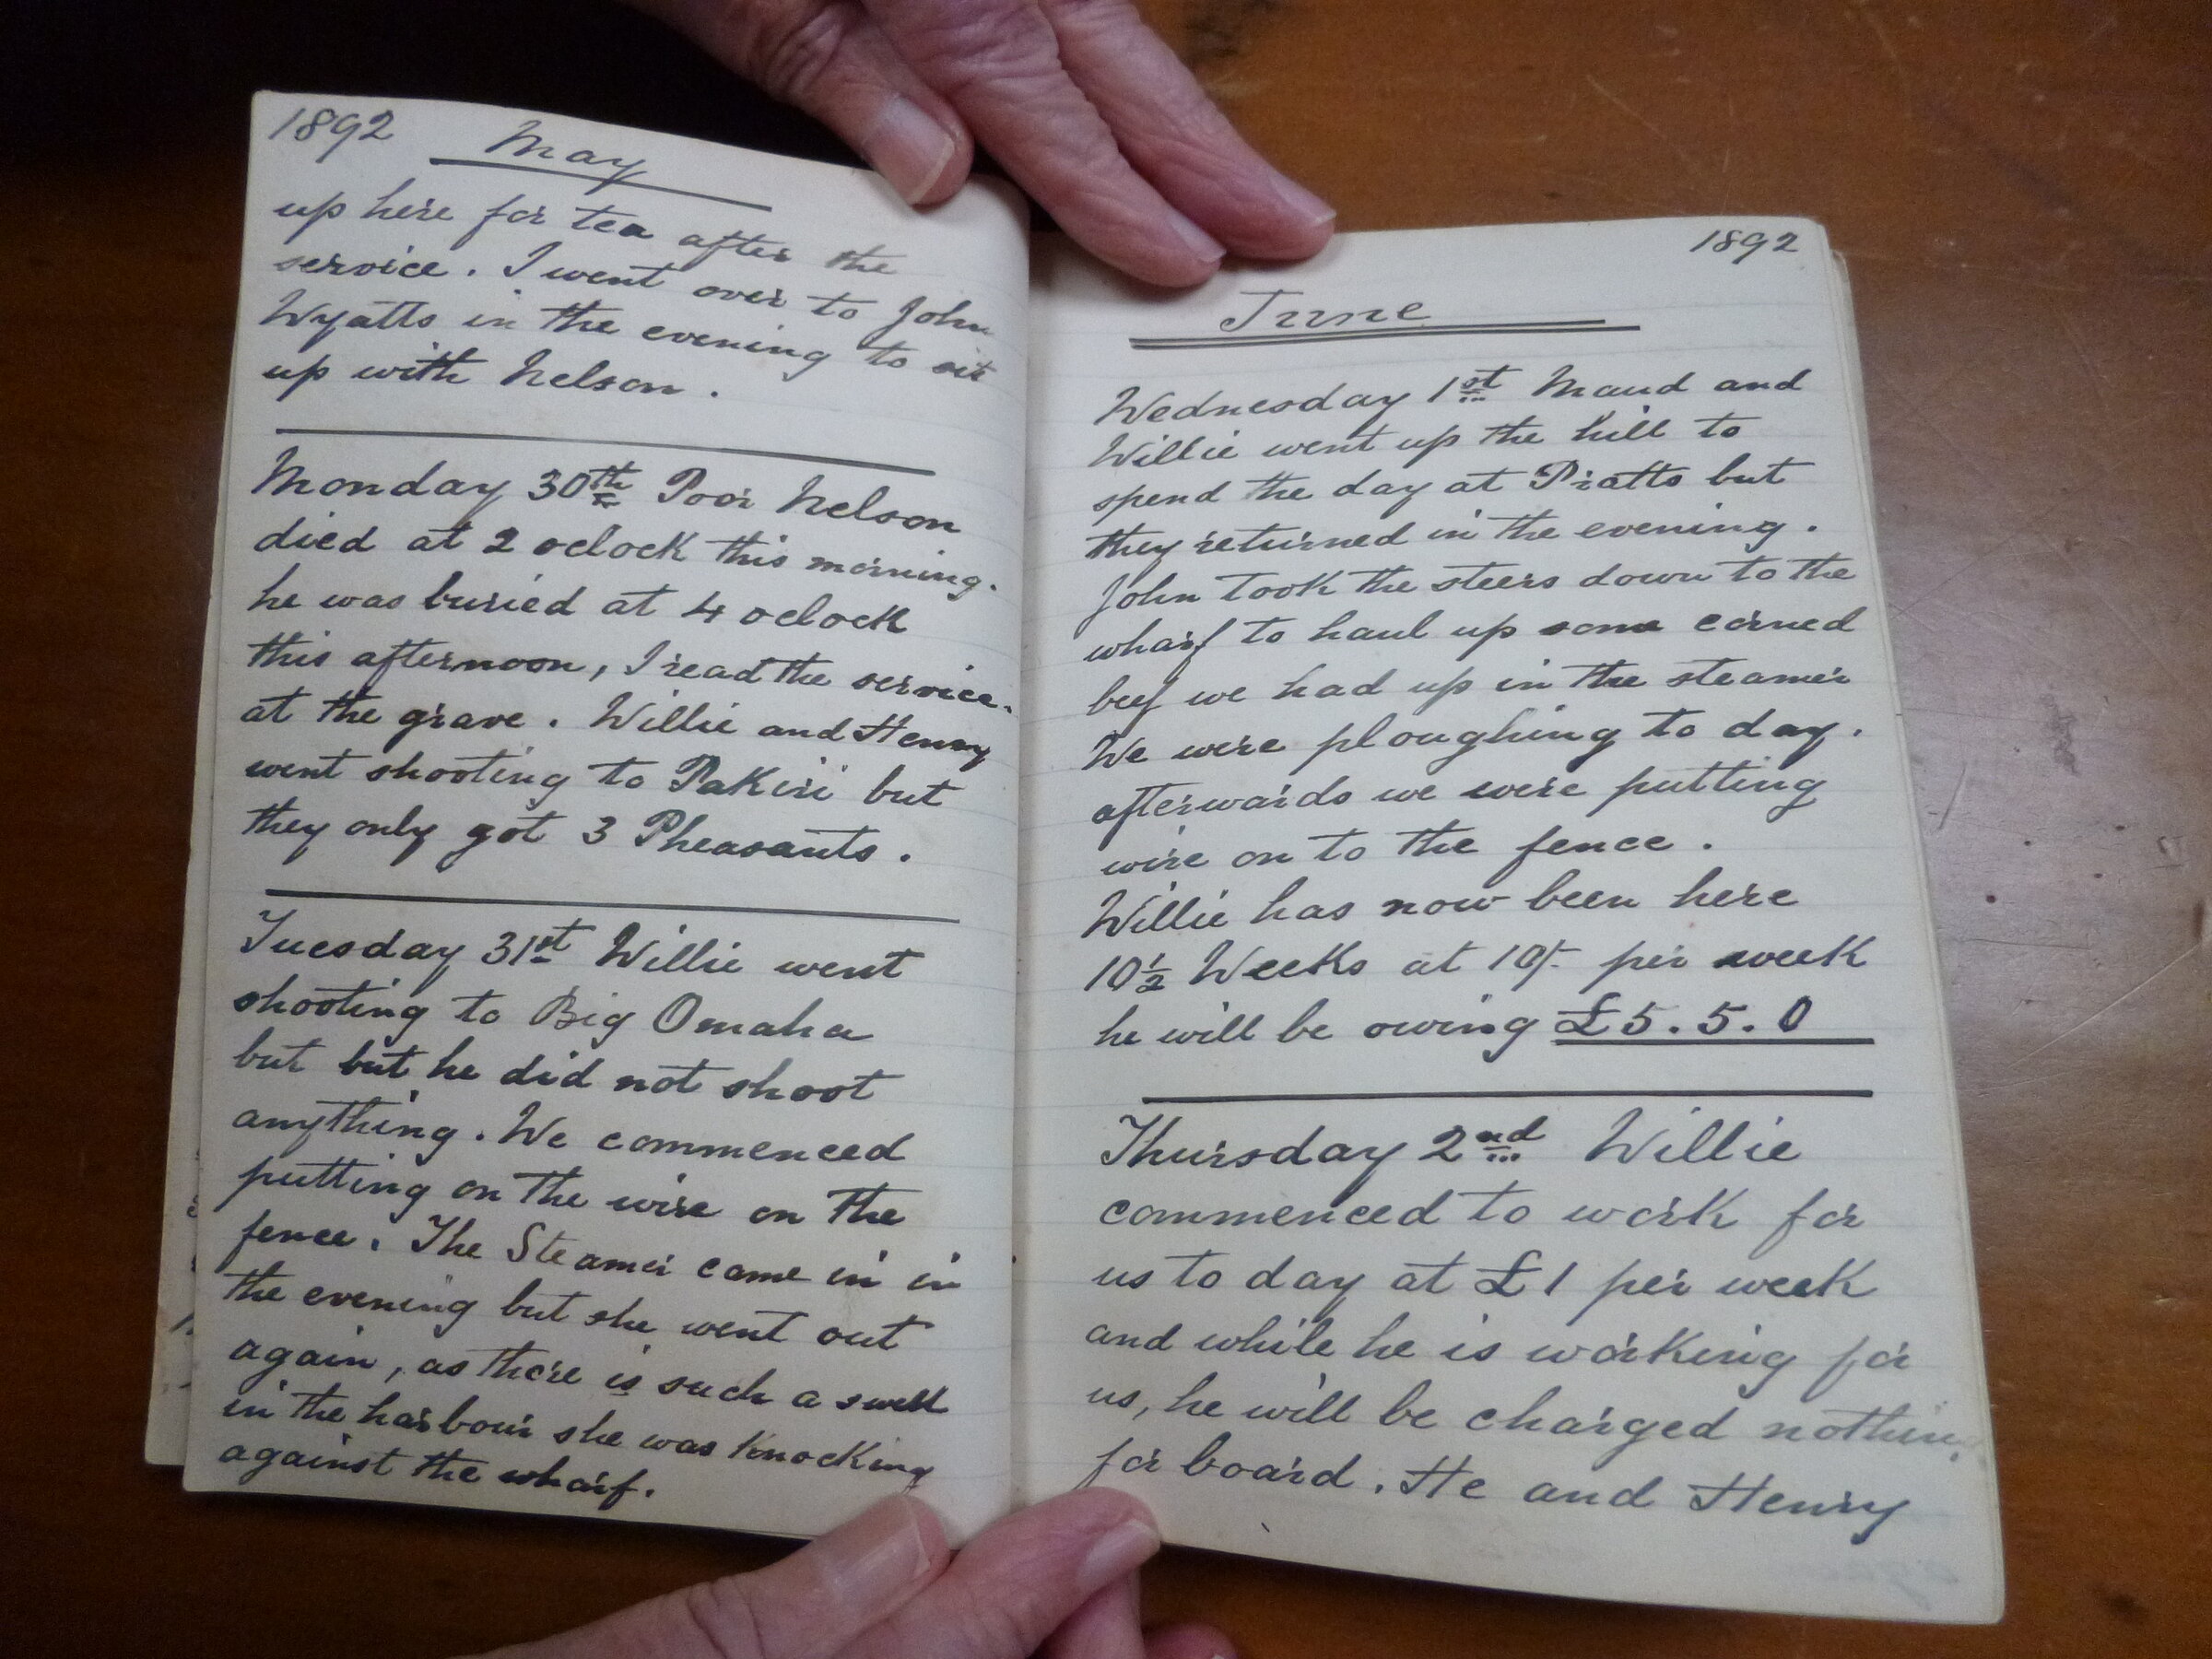 1892 May
up here for tea after the
service. I went over to John
Wyatts in the evening to sit
up with Nelson.
Monday 30th Poor Nelson
died at 2 oclock this morning.
he was buried at 4 oclock
this afternoon, I read the service.
at the grave. Willie and Henry
went shooting to Pakiri but
they only got 3 Pheasants.
Tuesday 31st Willie went
shooting to Big Omaha
but but he did not shoot
anything. We commenced
putting on the wire on the
fence. The Steamer came in in
the evening but she went out
again, as there is such a swell
in the harbour she was knocking
against the wharf.
1892
June
Wednesday 1st Maud and
Willie went up the hill to
spend the day at Pratts but
they returned in the evening.
John took the steers down to the
wharf to haul up some corned
beef we had up in the steamer
We were ploughing to day.
afterwards we were putting
wire on to the fence.
Willie has now been here
10½ Weeks at 10/- per week
he will be owing £5.5.0
Thursday 2nd Willie
commenced to work for
us to day at £1 per week
and while he is working for
us, he will be charged nothing
for board. He and Henry